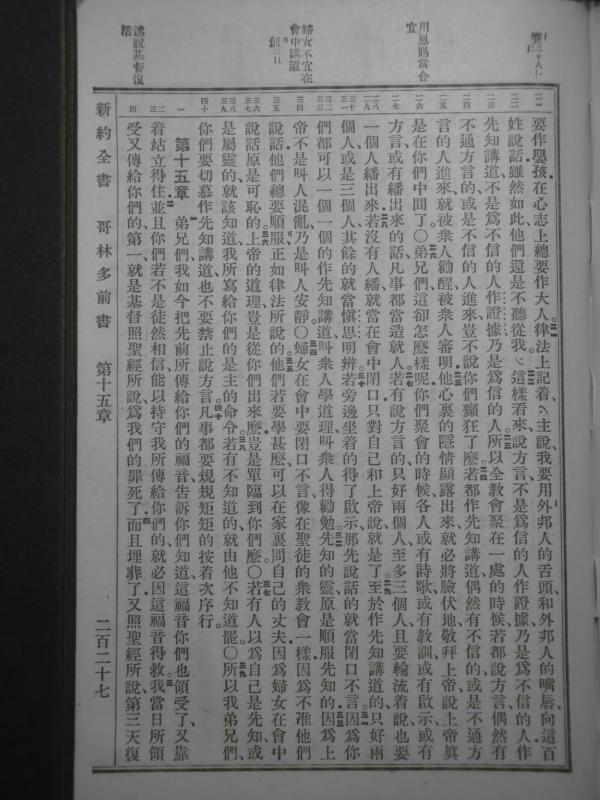 用恩賜當合宜
婦女不宜在會中講道
述說基督復活
要作嬰孩在心志上總要作大人律法上記着主說我要用外邦人的舌頭和外邦人的嘴唇向這百
姓說話雖然如此他們還是不聽從我這樣看來說方言不是爲信的人作證據乃是爲不信的人作
先知講道不是爲不信的人作證據乃是爲信的人所以全教會聚在一處的時候若都說方言偶然有
不通方言的或是不信的人進來豈不說你們癲狂了麽若都作先知講道偶然有不信的或是不通方
言的人進來就被衆人勸醒被衆人審明他心裏的隱情顯露出來就必將臉伏地敬拜上帝說上帝眞
是在你們中間了○弟兄們這却怎麽樣呢你們聚會的時候各人或有詩歌或有教訓或有啟示或有
方言或有繙出來的話凡事都當造就人若有說方言的只好兩個人至多三個人且要輪流着說也要
一個人繙出來若沒有人繙就當在會中閉口只對自己和上帝說就是了至於作先知講道的只好兩
個人或是三個人其餘的就當慎思明辨若旁邊坐着的得了啟示那先說話的就當閉口不言因爲你
們都可以一個一個的作先知講道叫衆人學道理叫衆人得勸勉先知的靈原是順服先知的因爲上
帝不是叫人混亂乃是叫人安靜○婦女在會中要閉口不言像在聖徒的衆教會一樣因爲不准他們
說話他們總要順服正如律法所說的他們若要學甚麽可以在家裏問自己的丈夫因爲婦女在會中
說話原是可恥的上帝的道理豈是從你們出來麽豈是單臨到你們麽○若有人以爲自己是先知或
是屬靈的就該知道我所寫給你們的是主的命令若有不知道的就由他不知道罷○所以我弟兄們
你們要切慕作先知講道也不要禁止說方言凡事都要規規矩矩的按着次序行
第十五章 弟兄們我如今把先前所傳給你們的福音告訴你們知道這福音你們也領受了又靠
着站立得住並且你們若不是徒然相信能以持守我所傳給你們的就必因這福音得救我當日所領
受又傳給你們的第一就是基督照聖經所說爲我們的罪死了而且埋葬了又照聖經所說第三天復
新約全書 哥林多前書 第十五章 二百二十七